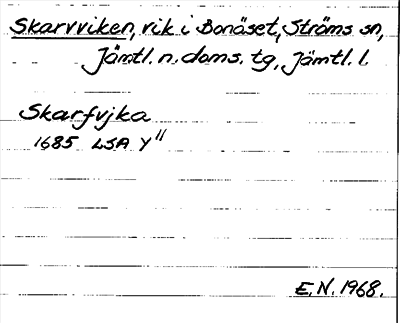 Skarvviken, vik i Bonäset, Ströms sn,
Jämtl. n. doms. tg, Jämtl. l.
Skarfvjka
1685 LSA Y"
E.N. 1968.